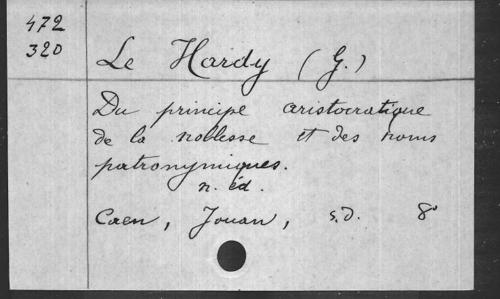 472
320
Le Hardy (G.)
Du principe aristocratique
de la noblesse et des noms
patronymiques.
n. éd.
Caen, Jouan, s.d. 8°